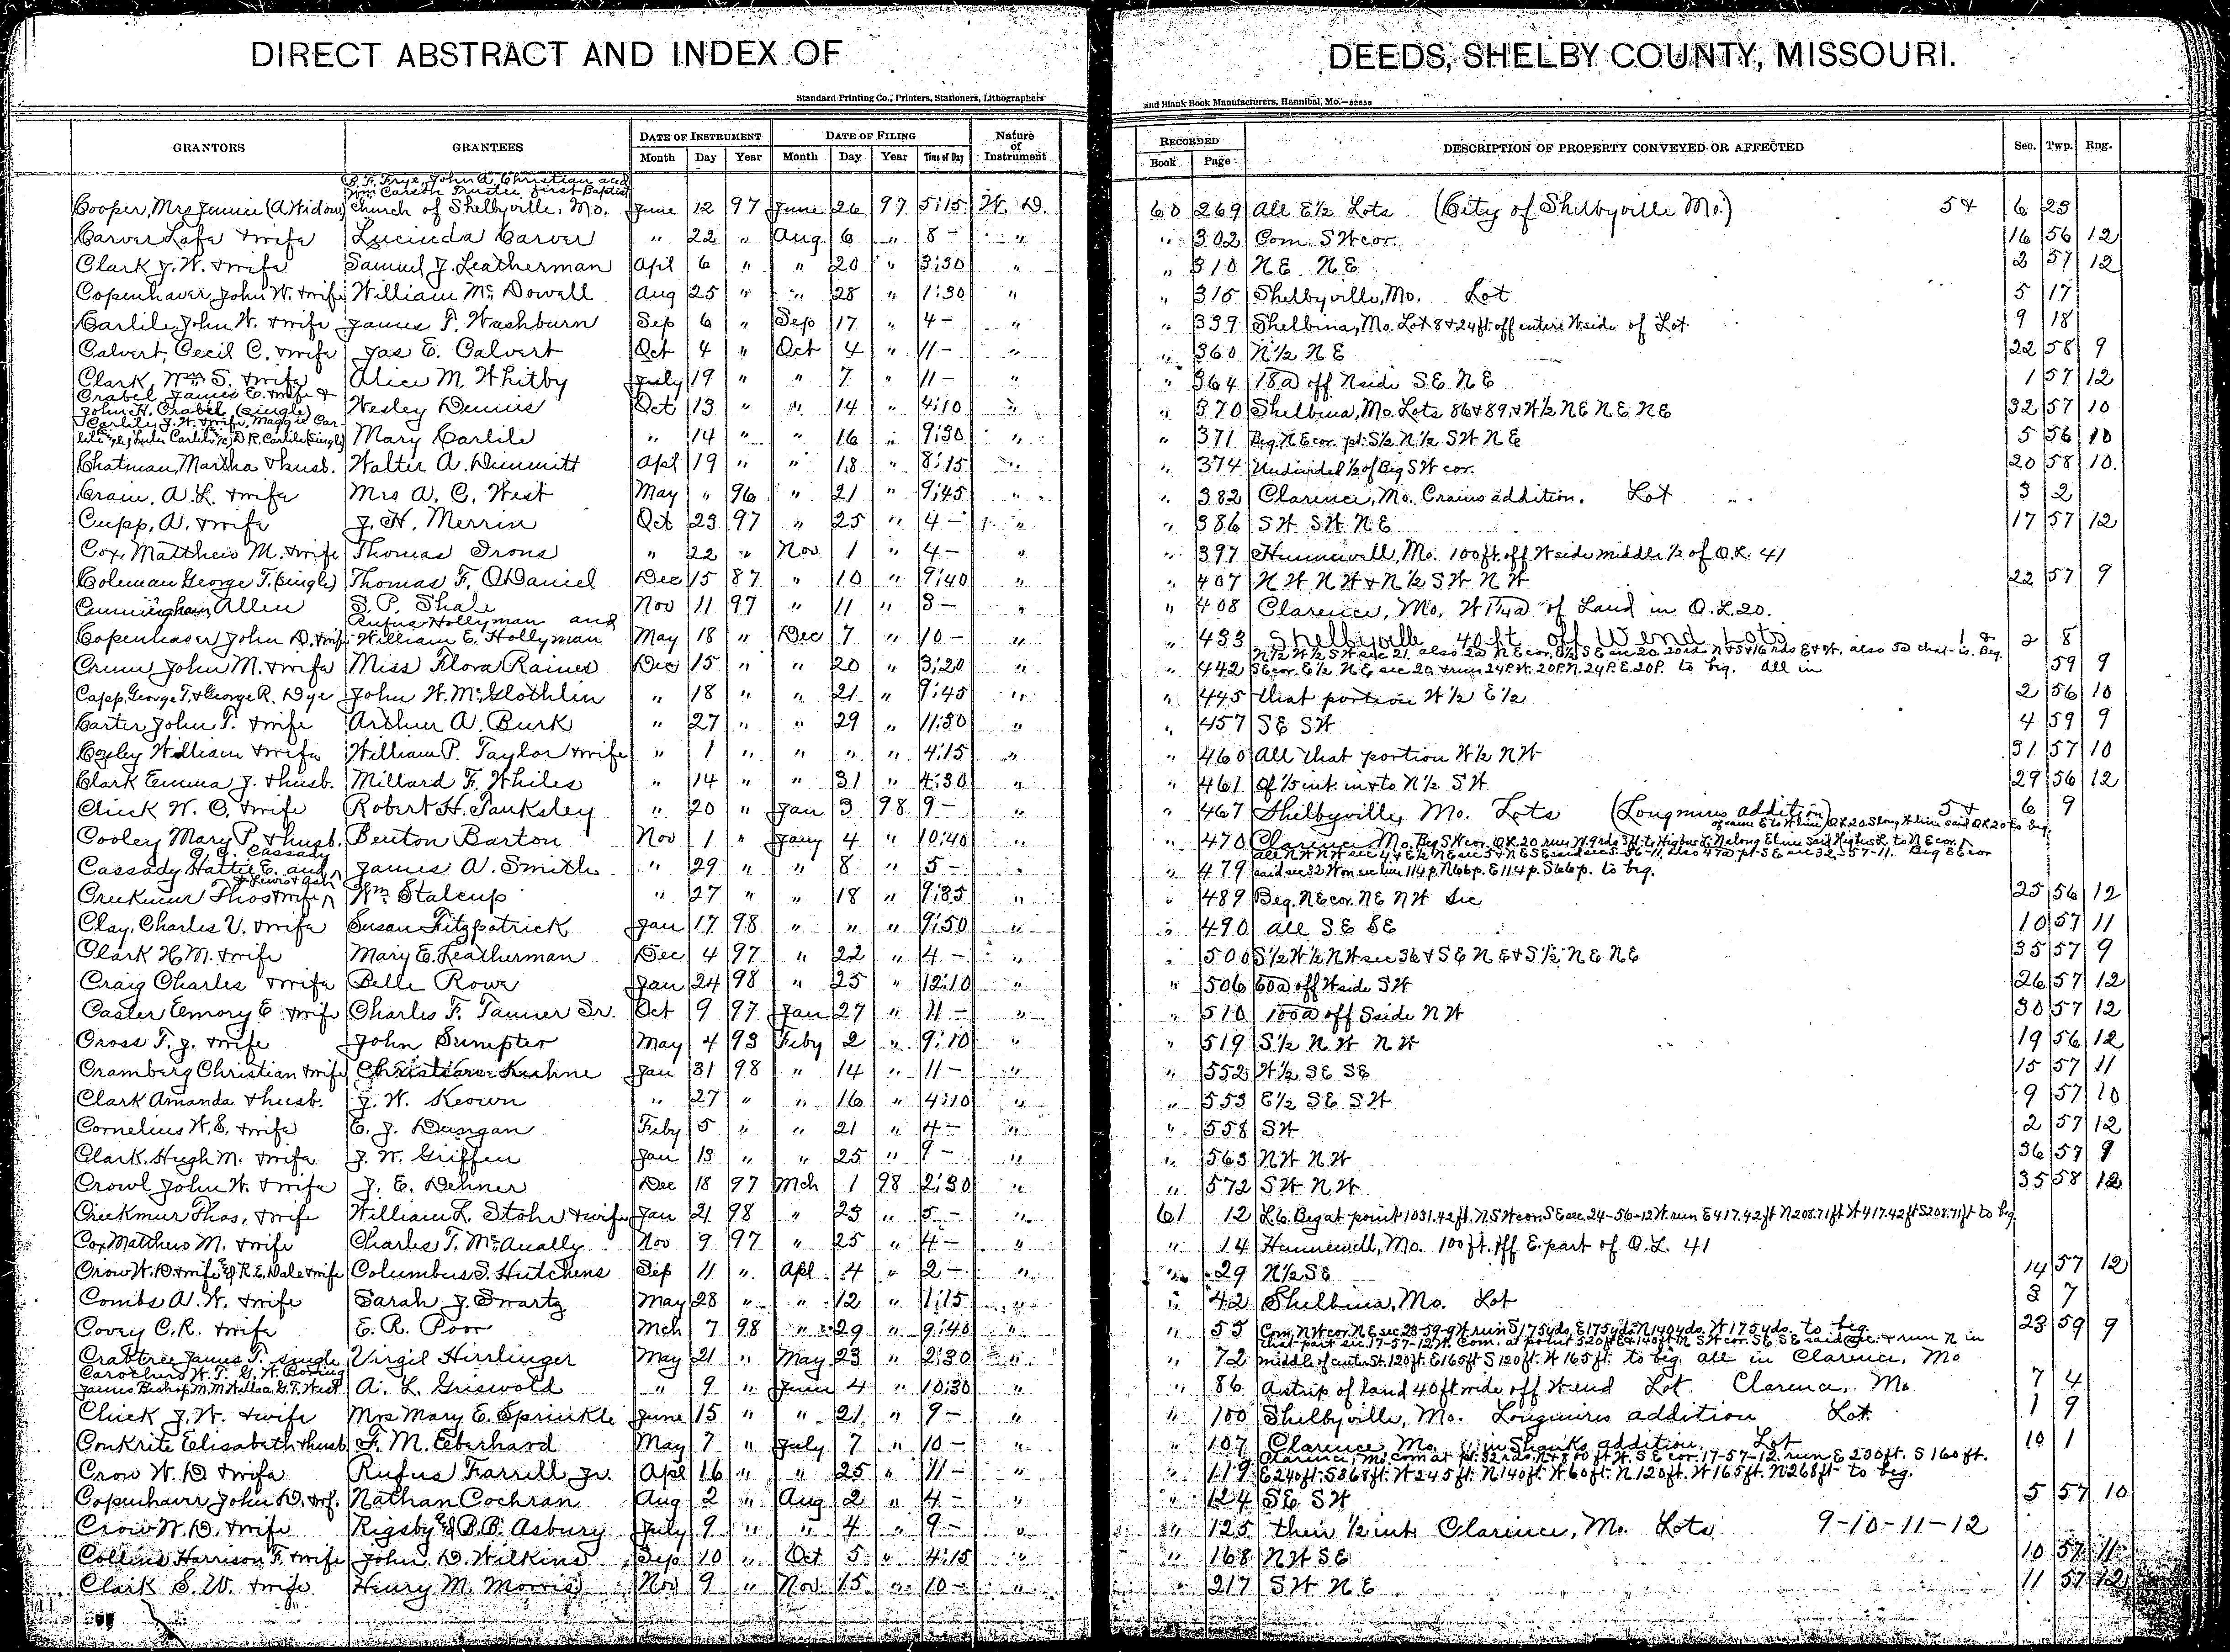 DIRECT ABSTRACT AND INDEX OF DEEDS, SHELBY COUNTY, MISSOURI.
Standard Printing Co., Printers, Stationers, Lithographers and Blank Book Manufacturers, Hannibal, Mo.
GRANTORS GRANTEES DATE OF INSTRUMENT DATE OF FILING Nature of Instrument RECORDED DESCRIPTION OF PROPERTY CONVEYED OR AFFECTED Sec. Twp. Rng.
Month Day Year Month Day Year Time of Day Book Page
B. F. Frye, John A. Christian and
Wm Carson Trustee first Baptist
Cooper, Mrs Jennie (A Widow) Church of Shelbyville, Mo. June 12 97 June 26 97 5:15 W. D. 60 269 All E½ Lots (City of Shelbyville Mo.) 5 & 6 23
Carver Lafe & wife Lucinda Carver " 22 " Aug 6 " 8 - " " 302 Com. SW cor. 16 56 12
Clark J. W. & wife Samuel J. Leatherman Apl 6 " " 20 " 3:30 " " 310 NE NE 2 57 12
Copenhaver John W. & wife William McDowell Aug 25 " " 28 " 1:30 " " 315 Shelbyville, Mo. Lot 5 17
Carlile, John W. & wife James T. Washburn Sep 6 " Sep 17 " 4 - " " 339 Shelbina, Mo. Lot 8 & 24 ft. off entire W side of Lot 9 18
Calvert, Cecil C. & wife Jas E. Calvert Oct 4 " Oct 4 " 11 - " " 360 N½ NE 22 58 9
Clark, Wm S. & wife Alice M. Whitby July 19 " " 7 " 11 - " " 364 18a off N side SE NE 1 57 12
Crabel James E. wife &
John H. Crabel (single) Wesley Dennis Oct 13 " " 14 " 4:10 " " 370 Shelbina, Mo. Lots 86 & 89, & W½ NE NE NE 32 57 10
Carlile J. W. & wife, Maggie Car-
lile Lulu Carlile D. R. Carlile (single) Mary Carlile " 14 " " 16 " 9:30 " " 371 Beg. NE cor. pt. S½ N½ SW NE 5 56 10
Chatman, Martha & husb. Walter A. Dimmitt Apl 19 " " 18 " 8:15 " " 374 Undivided ½ of Beg SW cor. 20 58 10
Crain, A. L. & wife Mrs A. C. West May " 96 " 21 " 9:45 " " 382 Clarence, Mo. Crains addition. Lot 3 2
Cupp, A. & wife J. H. Merrin Oct 23 97 " 25 " 4 - " " 386 SW SW NE 17 57 12
Cox, Matthew M. & wife Thomas Irons " 22 " Nov 1 " 4 - " " 397 Hunnewell, Mo. 100 ft. off W side middle ½ of O.L. 41
Coleman George T. (single) Thomas F. O'Daniel Dec 15 87 " 10 " 9:40 " " 407 NW NW & N½ SW NW 22 57 9
Cunningham, Allen S. P. Shale Nov 11 97 " 11 " 3 - " " 408 Clarence, Mo. of Land in O.L. 20.
Rufus Hollyman and
Copenhaver John D. & wife William E. Hollyman May 18 " Dec 7 " 10 - " " 433 Shelbyville 40 ft off W end Lots 1 & 2 8
N½ W½ SW sec 21. also 2a NE cor. E½ SE sec 20. 20 rds N & S & 16 rds E & W. also 3a that is Beg.
Crum John M. & wife Miss Flora Raines Dec 15 " " 20 " 3:20 " " 442 SE cor. E½ NE sec 20 & run 24 P. W. 20 P. N. 24 P. E. 20 P. to beg. all in 59 9
Capp, George T. & George R. Dye John W. McGlothlin " 18 " " 21 " 9:45 " " 445 that portion W½ E½ 2 56 10
Carter John T. & wife Arthur A. Burk " 27 " " 29 " 11:30 " " 457 SE SW 4 59 9
Coxley William & wife William P. Taylor & wife " 1 " " " " 4:15 " " 460 All that portion W½ NW 31 57 10
Clark Emma J. & husb. Millard F. Whiles " 14 " " 31 " 4:30 " " 461 Of 1/5 int. in & to N½ SW 29 56 12
Chick W. C. & wife Robert H. Tanksley " 20 " Jan 3 98 9 - " " 467 Shelbyville, Mo. Lots (Longmires addition) 5 & 6 9
Cooley Mary P. & husb. Benton Barton Nov 1 " Jany 4 " 10:40 " 470 Clarence, Mo. Beg SW cor. O.L. 20 run N. 9 rds
G. G. Cassady
Cassady Hattie E. and James A. Smith " 29 " " 8 " 5 - " " 479 said sec 32 W on sec line 114 p. N 66 p. E 114 p. S 66 p. to beg.
Creekmur Thos & wife Wm Stalcup " 27 " " 18 " 9:35 " " 489 Beg. NE cor. NE NW Sec 25 56 12
Clay, Charles V. & wife Susan Fitzpatrick Jan 17 98 " " " 9:50 " " 490 all SE SE 10 57 11
Clark H. M. & wife Mary E. Leatherman Dec 4 97 " 22 " 4 - " " 500 S½ W½ NW sec 36 & SE NE & S½ NE NE 35 57 9
Craig Charles & wife Belle Rowe Jan 24 98 " 25 " 12:10 " " 506 60a off W side SW 26 57 12
Caster Emory E & wife Charles F. Tanner Sr. Oct 9 97 Jan 27 " 11 - " " 510 100a off S side NW 30 57 12
Cross T. J. & wife John Sumpter May 4 93 Feby 2 " 9:10 " " 519 S½ NW NW 19 56 12
Cramberg Christian & wife Christian Kuhne Jan 31 98 " 14 " 11 - " " 552 W½ SE SE 15 57 11
Clark Amanda & husb. J. W. Keown " 27 " " 16 " 4:10 " " 553 E½ SE SW 9 57 10
Cornelius W. S. & wife E. J. Dungan Feby 5 " " 21 " 4 - " " 558 SW 2 57 12
Clark, Hugh M. & wife J. W. Griffen Jan 13 " " 25 " 9 - " " 563 NW NW 36 57 9
Crowl John W. & wife J. E. Dehner Dec 18 97 Mch 1 98 2:30 " " 572 SW NW 35 58 12
Creekmur Thos, & wife William L. Stohr & wife Jan 21 98 " 23 " 5 - " 61 12 L.6. Beg at point 1031.42 ft. N SW cor. SE sec. 24-56-12 W. run E 417.42 ft N 208.71 ft W 417.42 ft S 208.71 ft to beg
Cox Matthew M. & wife Charles T. McAnally Nov 9 97 " 25 " 4 - " " 14 Hunnewell, Mo. 100 ft. off E. part of O.L. 41
Crow W. D. & wife & R. E. Dale & wife Columbus S. Hutchens Sep 11 " Apl 4 " 2 - " " 29 N½ SE 14 57 12
Combs A. W. & wife Sarah J. Swartz May 28 " " 12 " 1:15 " " 42 Shelbina, Mo. Lot 3 7
Covey C. R. & wife E. R. Poor Mch 7 98 " 29 " 9:40 " " 55 Com. NW cor. NE sec 23-59-9 W. run S 175 yds. E 175 yds. N 140 yds. W 175 yds. to beg. 23 59 9
that part sec. 17-57-12 W. Com. at point 520 ft E & 140 ft N SW cor. SE SE said sec. & run N in
Crabtree James T. single Virgil Hirrlinger May 21 " May 23 " 2:30 " " 72 middle of center St. 120 ft. E 165 ft S 120 ft. W 165 ft. to beg. all in Clarence, Mo
Carothers W. T. G. W. Boring
James Bishop, M. M. Wallace, G. T. West A. L. Griswold " 9 " June 4 " 10:30 " " 86 A strip of land 40 ft wide off W end Lot. Clarence, Mo 7 4
Chick J. W. & wife Mrs Mary E. Sprinkle June 15 " " 21 " 9 - " " 100 Shelbyville, Mo. Longmires addition Lot 1 9
Conkrite Elisabeth & husb F. M. Eberhard May 7 " July 7 " 10 - " " 107 Clarence, Mo. in Shanks addition. Lot 10 1
Clarence, Mo. Com at pt. 32 rds. N & 800 ft W. SE cor. 17-57-12. run E 230 ft. S 160 ft.
Crow W. D. & wife Rufus Farrell Jr. Apl 16 " " 25 " 11 - " " 119 E 240 ft. S 368 ft. W 245 ft. N 140 ft. W 60 ft. N 120 ft. W 165 ft. N 268 ft to beg.
Copenhaver John D. & wf. Nathan Cochran Aug 2 " Aug 2 " 4 - " " 124 SE SW 5 57 10
Crow W. D. & wife Rigsby & B. B. Asbury July 9 " " 4 " 9 - " " 125 their ½ int. Clarence, Mo. Lots 9-10-11-12
Collins Harrison F. & wife John D. Wilkins Sep 10 " Oct 5 " 4:15 " " 168 NW SE 10 57 11
Clark S. W. & wife Henry M. Morris Nov 9 " Nov 15 " 10 - " " 217 SW NE 11 57 12